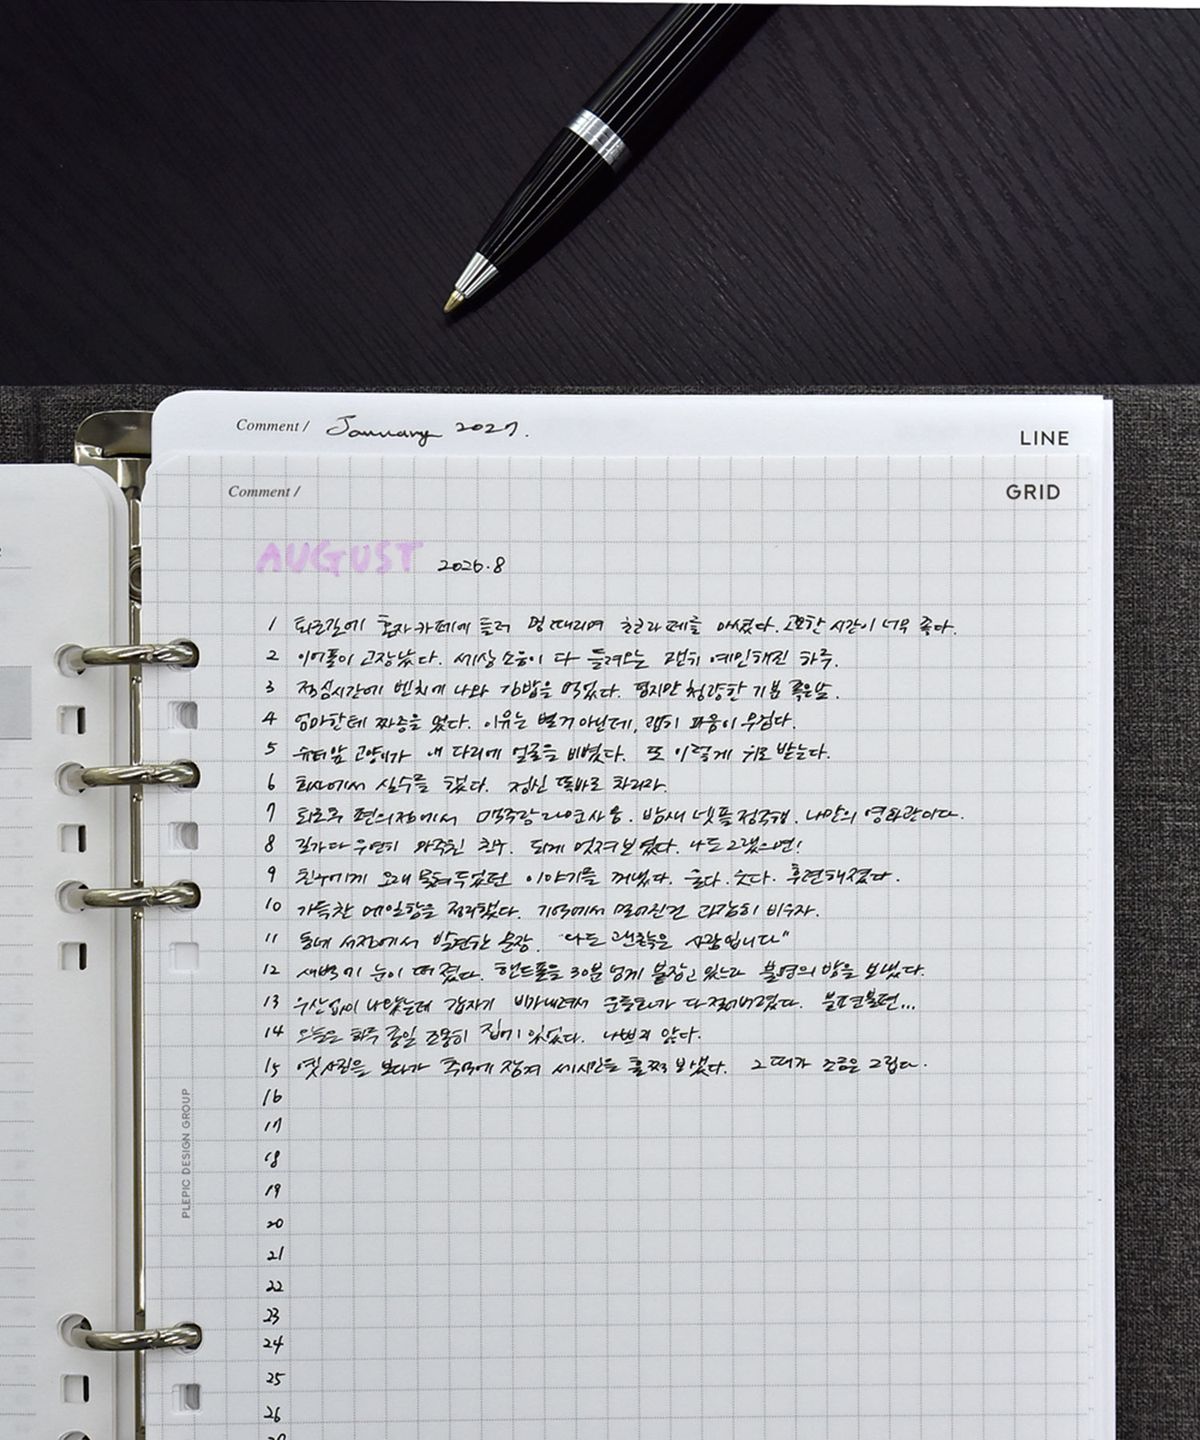 Comment / January 2027.
LINE
Comment /
GRID
AUGUST 2026.8
1 퇴근길에 혼자 카페에 들러 멍 때리며 초코라떼를 마셨다. 고요한 시간이 너무 좋다.
2 이어폰이 고장났다. 세상 소음이 다 들려오는 괜히 예민해진 하루.
3 점심시간에 벤치에 나와 김밥을 먹었다. 혼자만 청량한 기분 좋은날.
4 엄마한테 짜증을 냈다. 이유는 별거 아닌데, 괜히 마음이 무겁다.
5 슈퍼앞 고양이가 내 다리에 얼굴을 비볐다. 또 이렇게 위로 받는다.
6 회사에서 실수를 했다. 정신 똑바로 차리자.
7 퇴근후 편의점에서 맥주랑 라면사옴. 밤새 넷플 정주행. 나만의 영화관이다.
8 길가다 우연히 마주친 친구. 되게 멋져보였다. 나도 그랬으면!
9 친구에게 오래 묵혀두었던 이야기를 꺼냈다. 울다. 웃다. 후련해졌다.
10 가득찬 메일함을 정리했다. 기억에서 멀어진건 과감히 비우자.
11 동네 서점에서 발견한 문장. "나는 괜찮은 사람입니다"
12 새벽에 눈이 떠졌다. 핸드폰을 30분 넘게 붙잡고 있느라 불면의 밤을 보냈다.
13 우산없이 나왔는데 갑자기 비가내려서 운동화가 다 젖어버렸다. 불편불편...
14 오늘은 하루 종일 조용히 집에 있었다. 나쁘지 않다.
15 옛사진을 보다가 추억에 잠겨 세시간을 훌쩍 보냈다. 그때가 조금은 그립다.
16
17
18
19
20
21
22
23
24
25
26
PLEPIC DESIGN GROUP